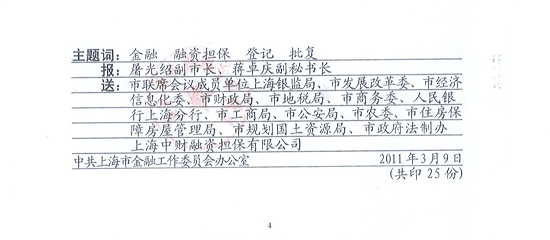 主题词：金融 融资担保 登记 批复
报：屠光绍副市长、蒋卓庆副秘书长
送：市联席会议成员单位上海银监局、市发展改革委、市经济
信息化委、市财政局、市地税局、市商务委、人民银
行上海分行、市工商局、市公安局、市农委、市住房保
障房屋管理局、市规划国土资源局、市政府法制办
上海中财融资担保有限公司
中共上海市金融工作委员会办公室 2011年3月9日
(共印25份)
4